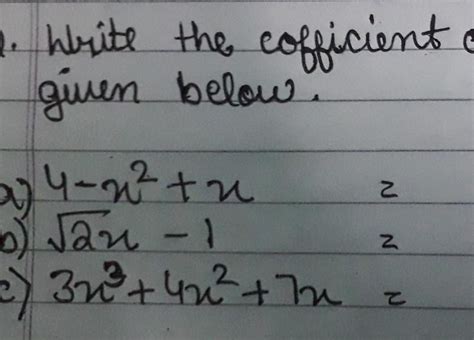 . Write the cofficient
given below.
a) 4 - x² + x =
b) √2x - 1 =
c) 3x³ + 4x² + 7x =